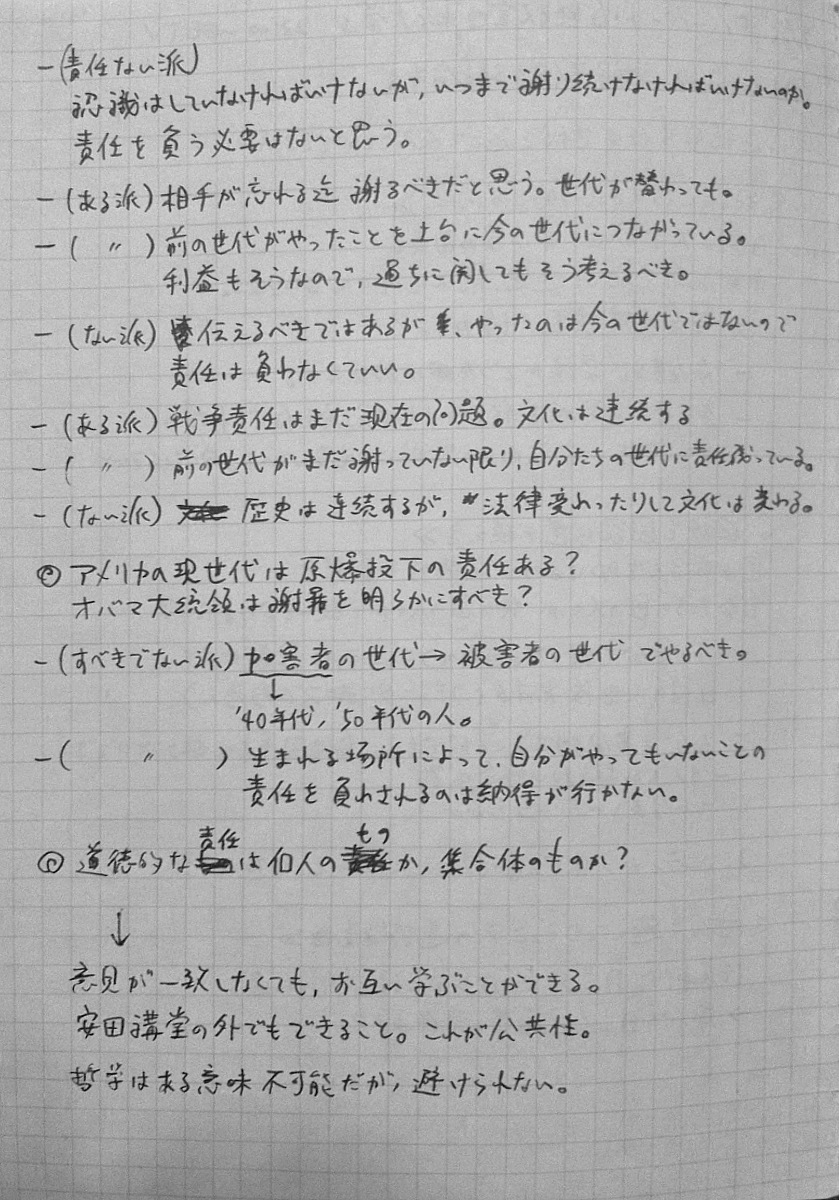 - (責任ない派)
認識はしていなければいけないが, いつまで謝り続けなければいけないのか。
責任を負う必要はないと思う。
- (ある派) 相手が忘れる迄 謝るべきだと思う。世代が替わっても。
- ( 〃 ) 前の世代がやったことを土台に今の世代につながっている。
利益もそうなので, 過ちに関してもそう考えるべき。
- (ない派) 伝えるべきではあるが、やったのは今の世代ではないので
責任は負わなくていい。
- (ある派) 戦争責任はまだ現在の問題。文化は連続する
- ( 〃 ) 前の世代がまだ謝っていない限り, 自分たちの世代に責任残っている。
- (ない派) 歴史は連続するが, 法律変わったりして文化は変わる。
◎ アメリカの現世代は原爆投下の責任ある?
オバマ大統領は謝罪を明らかにすべき?
- (すべきでない派) 加害者の世代→被害者の世代 でやるべき。
↓
'40年代, '50年代の人。
- ( 〃 ) 生まれる場所によって, 自分がやってもいないことの
責任を負わされるのは納得が行かない。
◎ 道徳的な責任は個人のものか, 集合体のものか?
↓
意見が一致しなくても, お互い学ぶことができる。
安田講堂の外でもできること。これが公共性。
哲学はある意味不可能だが, 避けられない。